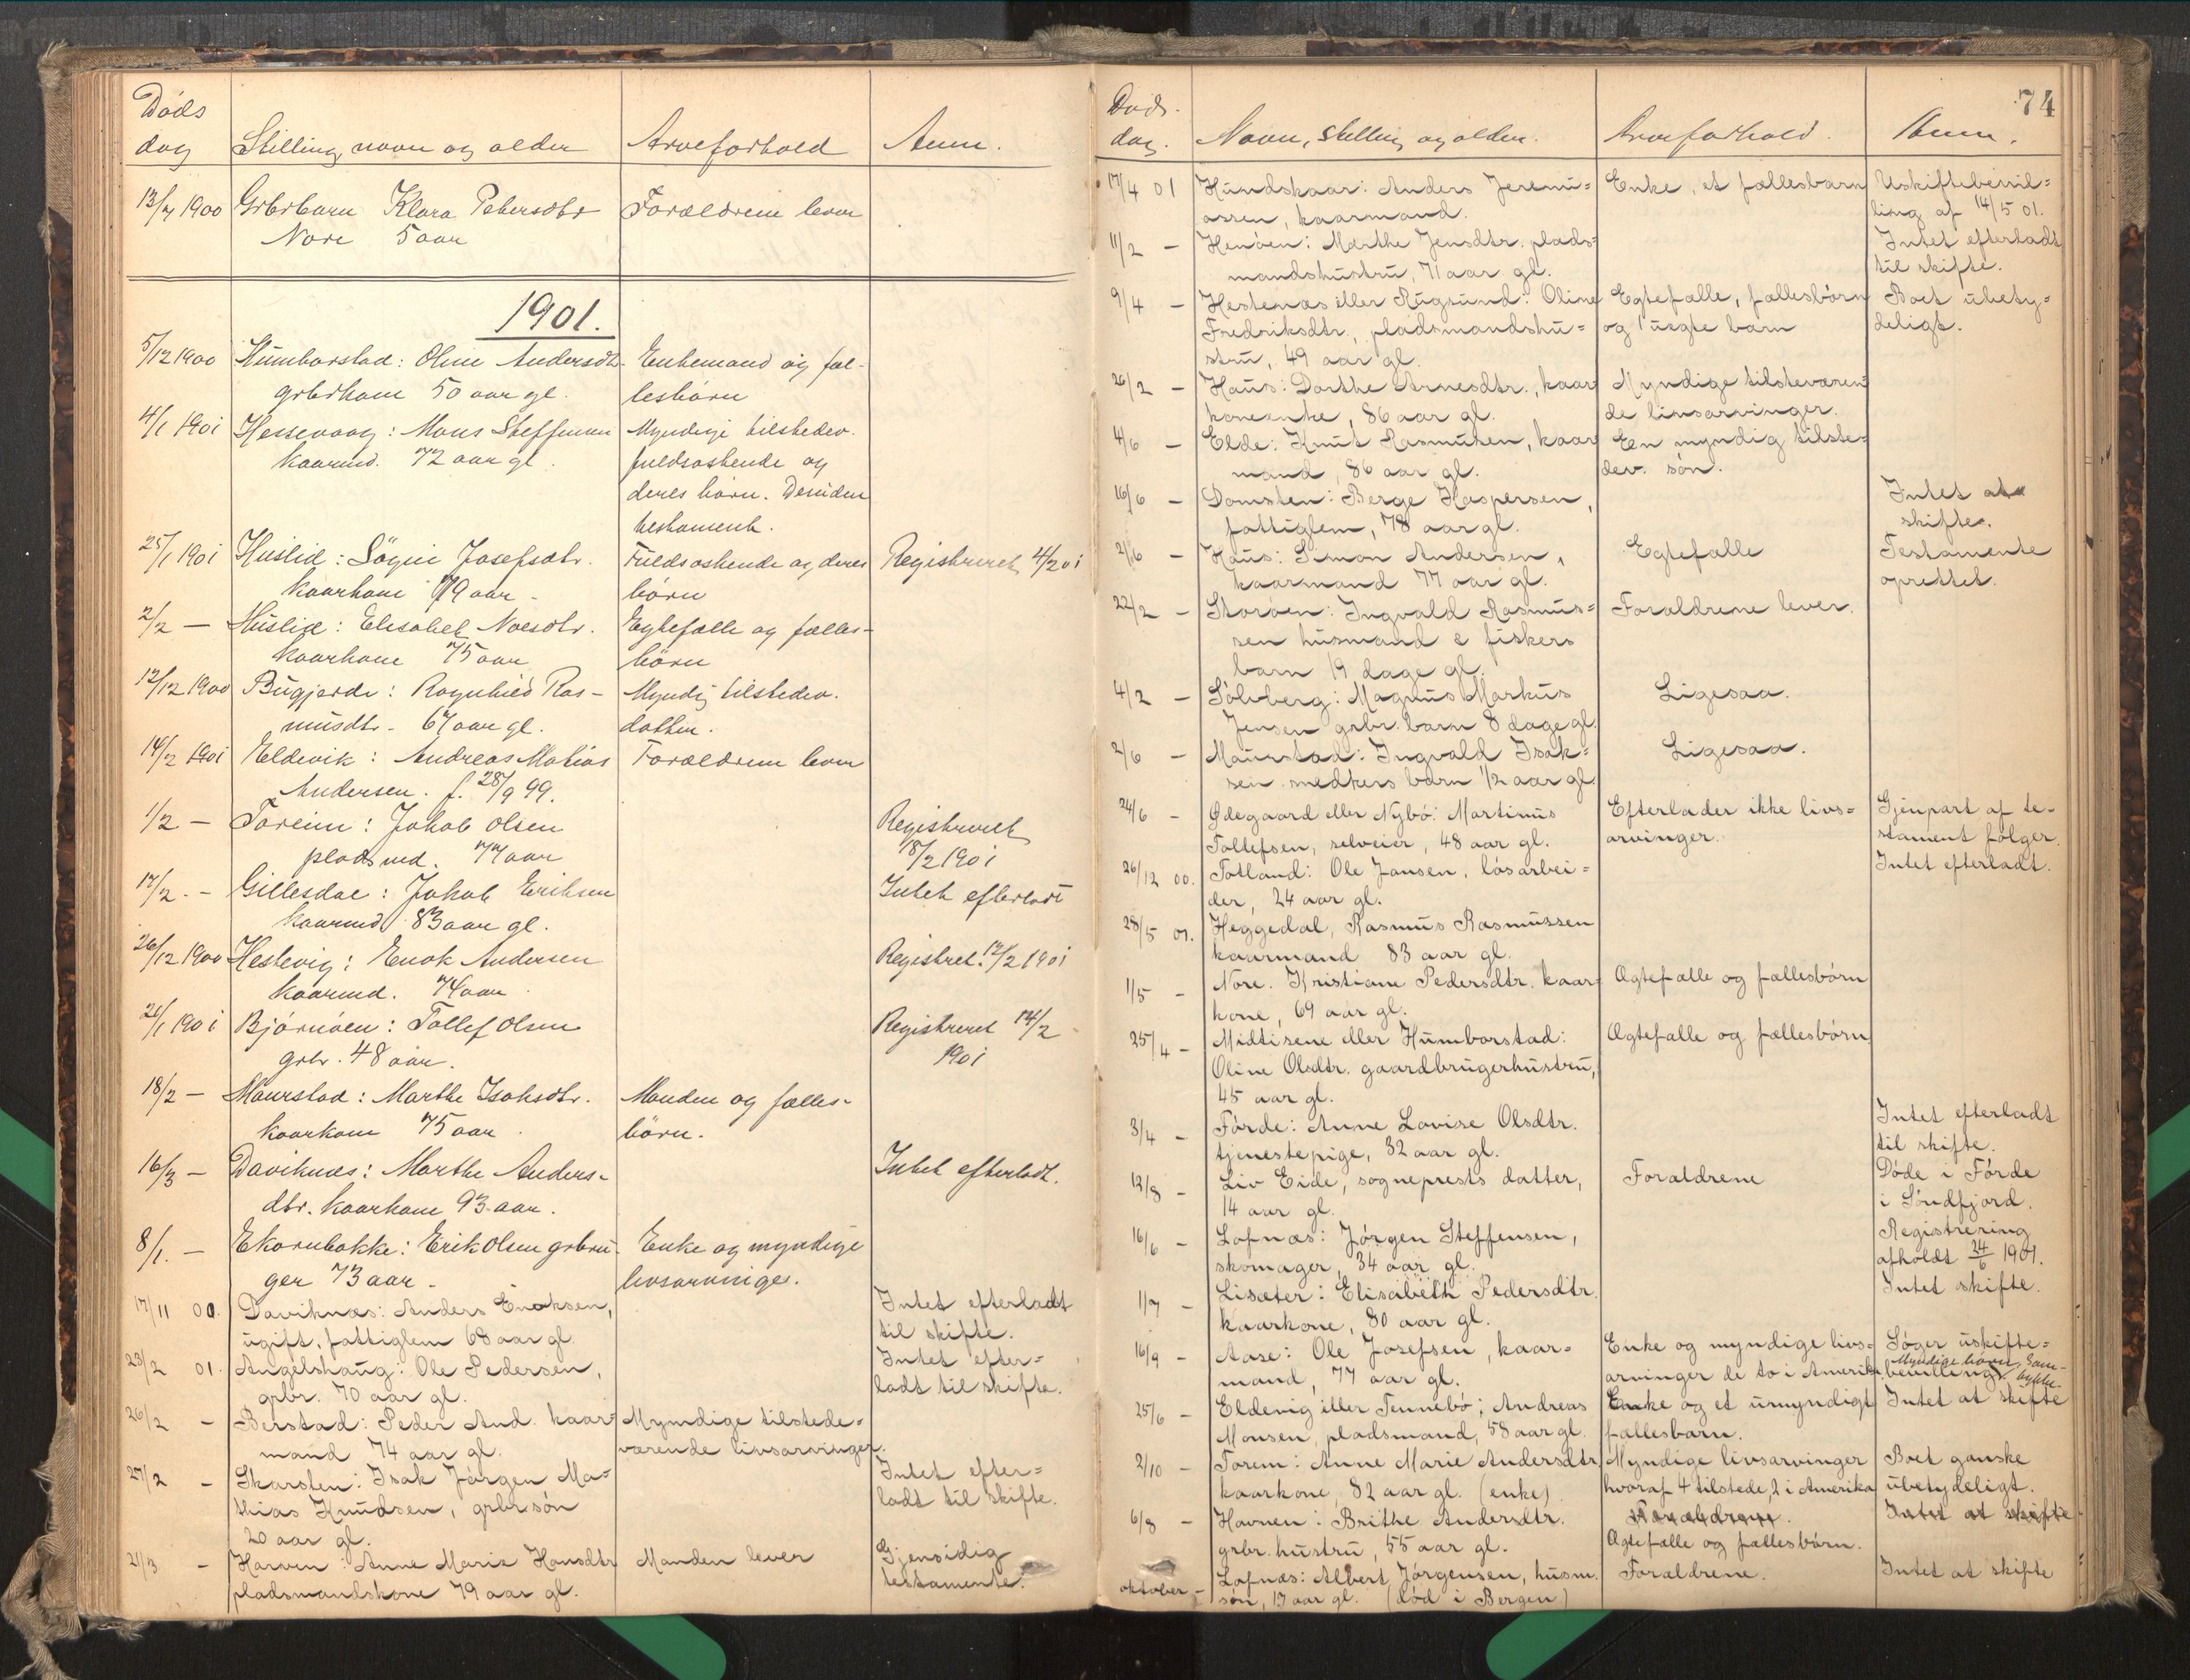 Döds
dag
Stilling navn og alder
Arveforhold
Anm.
13/7 1900 Grbrbarn Klara Petersdtr Forældrene lever
Nore 5 aar
1901.
5/12 1900 Humborstad: Oline Andersdtr. Enkemand og fæl-
grbrkone 50 aar gl. lesbörn
4/1 1901 Hessevaag: Mons Steffensen Myndige tilstedev.
kaarmd. 72 aar gl. fuldsøskende og
deres börn. Desuden
testament.
25/1 1901 Huslid: Sögni Josefsdtr. Fuldsøskende og deres Registreret 4/2 01
kaarkone 79 aar - börn
2/2 — Huslid: Elisabet Noesdtr. Egtefælle og fælles-
kaarkone 75 aar börn
12/12 1900 Bugjerde: Ragnhild Ras- Myndig tilstedev.
musdtr. 67 aar gl. datter.
14/2 1901 Eldevik: Andreas Matias Forældrene lever
Andersen. f. 28/9 99.
1/2 — Foreim: Jakob Olsen Registreret
pladsmd. 77 aar 18/2 1901
17/2 - Gillesdal: Jakob Eriksen Intet efterladt
kaarmd 83 aar gl.
26/12 1900 Hestevig: Enok Andersen Registret. 12/2 1901
kaarmd. 74 aar
21/1 1901 Björnöen: Tollef Olsen Registreret 14/2
grbr. 48 aar. 1901
18/2 — Maurstad: Marthe Isaksdtr. Manden og fælles-
kaarkone 75 aar börn.
16/3 — Daviknæs: Marthe Anders- Intet efterladt.
dtr. kaarkone 93 aar.
8/1 — Ekornbakke: Erik Olsen grbru- Enke og myndige
ger 73 aar - livsarvinge.
17/11 00. Daviknæs: Anders Enoksen, Intet efterladt
ugift, fattiglem 68 aar gl. til skifte.
23/2 01. Angelshaug: Ole Pedersen, Intet efter=
grbr. 70 aar gl. ladt til skifte.
26/2 - Berstad: Peder And. kaar= Myndige tilstede=
mand 74 aar gl. værende livsarvinger.
27/2 - Skarsten: Isak Jörgen Ma= Intet efter=
thias Knudsen, grbr sön ladt til skifte.
20 aar gl.
21/3 - Harven: Anne Marie Hansdtr Manden lever Gjensidig
pladsmandskone 79 aar gl. testamente.
74
Döds.
dag. Navn, stilling og alder. Arveforhold. Anm.
17/4 01 Hundskaar: Anders Jeremi= Enke, et fællesbarn Uskiftebevil=
assen, kaarmand. ling af 14/5 01.
11/2 — Henöen: Marthe Jensdtr. plads= Intet efterladt
mandshustru, 71 aar gl. til skifte.
9/4 — Hestenæs eller Rugsund: Oline Egtefælle, fællesbörn Boet ubety=
Fredriksdtr., pladsmandshu= og 1 uegte barn deligt.
stru, 49 aar gl.
26/2 — Haus: Dorthe Arnesdtr., kaar= Myndige tilsteværen=
koneenke, 86 aar gl. de livsarvinger.
4/6 — Elde: Knut Rasmusen, kaar En myndig tilste=
mand, 86 aar gl. dev. sön.
16/6 — Domsten: Berge Kaspersen, Intet at
fattiglem, 78 aar gl. skifte.
2/6 — Haus: Simon Andersen, Egtefælle Testamente
kaarmand 77 aar gl. oprettet.
22/2 — Storöen: Ingvald Rasmus= Foraldrene lever.
sen husmand & fiskers
barn 19 dage gl.
4/2 — Sölvberg: Magnus Markus Ligesaa.
Jensen grbr. barn 8 dage gl.
2/6 — Maurstad: Ingvald Isak= Ligesaa.
sen medkers barn 1/2 aar gl
24/6 - Ødegaard eller Nybö: Martinus Efterlader ikke livs= Gjenpart af te-
Tollefsen, selveier, 48 aar gl. arvinger. stament følger.
26/12 00. Totland: Ole Jansen, lösarbei= Intet efterladt.
der, 24 aar gl.
28/5 01. Heggedal, Rasmus Rasmussen
kaarmand 83 aar gl.
1/5 - Nore. Kristiane Pedersdtr. kaar= Ægtefælle og fællesbörn
kone, 69 aar gl.
25/4 - Midtisene eller Humborstad: Ægtefælle og fællesbörn
Oline Olsdtr. gaardbrugerhustru,
45 aar gl.
3/4 - Förde: Anne Lovise Olsdtr. Intet efterladt
tjenestepige, 32 aar gl. til skifte.
12/8 - Liv Eide, sogneprests datter, Foraldrene Döde i Förde
14 aar gl. i Söndfjord.
16/6 - Lofnæs: Jørgen Steffensen, Registrering
skomager, 34 aar gl. afholdt 24/6 1901.
1/7 - Lisæter: Elisabeth Pedersdtr. Intet skifte.
kaarkone, 80 aar gl.
16/9 - Aase: Ole Josefsen, kaar= Enke og myndige livs= Söger uskifte=
mand, 77 aar gl. arvinger de to i Amerika bevilling. Myndige börn. Sam-
tykke-
25/6 - Eldevig eller Tennebö; Andreas Enke og et umyndigt Intet at skifte
Monsen, pladsmand, 58 aar gl. fællesbarn.
2/10 - Torem: Anne Marie Andersdtr. Myndige livsarvinger Boet ganske
kaarkone, 82 aar gl. (enke) hvoraf 4 tilstede, 2 i Amerika ubetydeligt.
6/8 - Havnen: Brithe Andersdtr. Foraldrene. Intet at skifte
grbr. hustru, 55 aar gl. Ægtefælle og fællesbörn.
oktober - Lofnæs: Albert Jørgensen, husm. Foraldrene. Intet at skifte
søn, 17 aar gl. (död i Bergen)